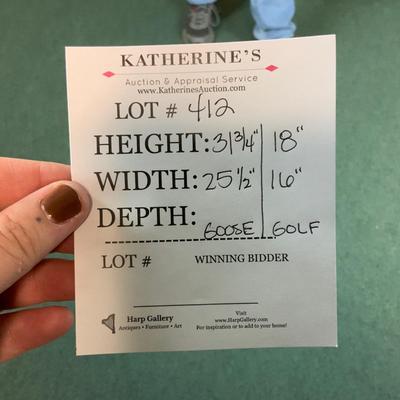 KATHERINE'S
Auction & Appraisal Service
www.KatherinesAuction.com
LOT # 412
HEIGHT: 31 3/4" | 18"
WIDTH: 25 1/2" | 16"
DEPTH:
GOOSE | GOLF
LOT # WINNING BIDDER
Harp Gallery
Antiques • Furniture • Art
Visit
www.HarpGallery.com
For inspiration or to add to your home!